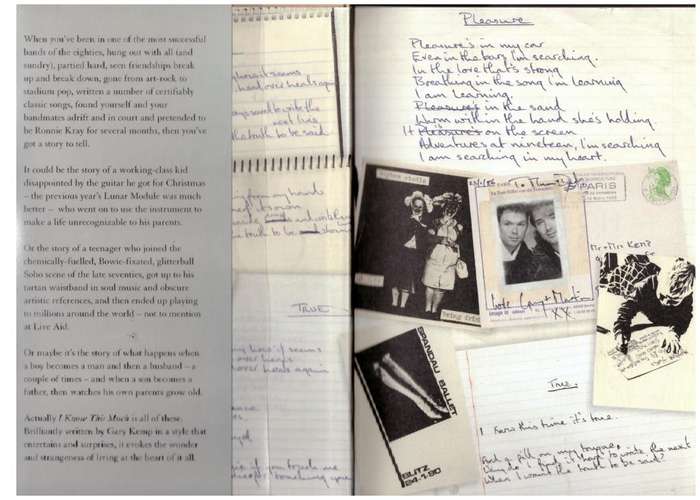 When you've been in one of the most successful
bands of the eighties, hung out with all (and
sundry), partied hard, seen friendships break
up and break down, gone from art-rock to
stadium pop, written a number of certifiably
classic songs, found yourself and your
bandmates adrift and in court and pretended to
be Ronnie Kray for several months, then you've
got a story to tell.
It could be the story of a working-class kid
disappointed by the guitar he got for Christmas
– the previous year's Lunar Module was much
better – who went on to use the instrument to
make a life unrecognizable to his parents.
Or the story of a teenager who joined the
chemically-fuelled, Bowie-fixated, glitterball
Soho scene of the late seventies, got up to his
tartan waistband in soul music and obscure
artistic references, and then ended up playing
to millions around the world – not to mention
at Live Aid.
Or maybe it's the story of what happens when
a boy becomes a man and then a husband – a
couple of times – and when a son becomes a
father, then watches his own parents grow old.
Actually I Know This Much is all of these.
Brilliantly written by Gary Kemp in a style that
entertains and surprises, it evokes the wonder
and strangeness of living at the heart of it all.
it seems
head over heels
to write the
the truth to be said
my hands
truth to be
TRUE
it seems
over heels again
Pleasure
Pleasure's in my car
Even in the bars I'm searching.
In the love that's strong
Breathing in the song I'm learning
I am learning.
Pleasure's in the sand
Warm within the hand she's holding.
It Pleasure's on the screen
Adventures at nineteen, I'm searching
I am searching in my heart.
PARIS
Love Gary + Martin
XX
SPANDAU BALLET
BLITZ
24.1.80
True.
I know this time it's true.
And a pill on my tongue
Why do I find it hard to write the next
When I want the truth to be said?